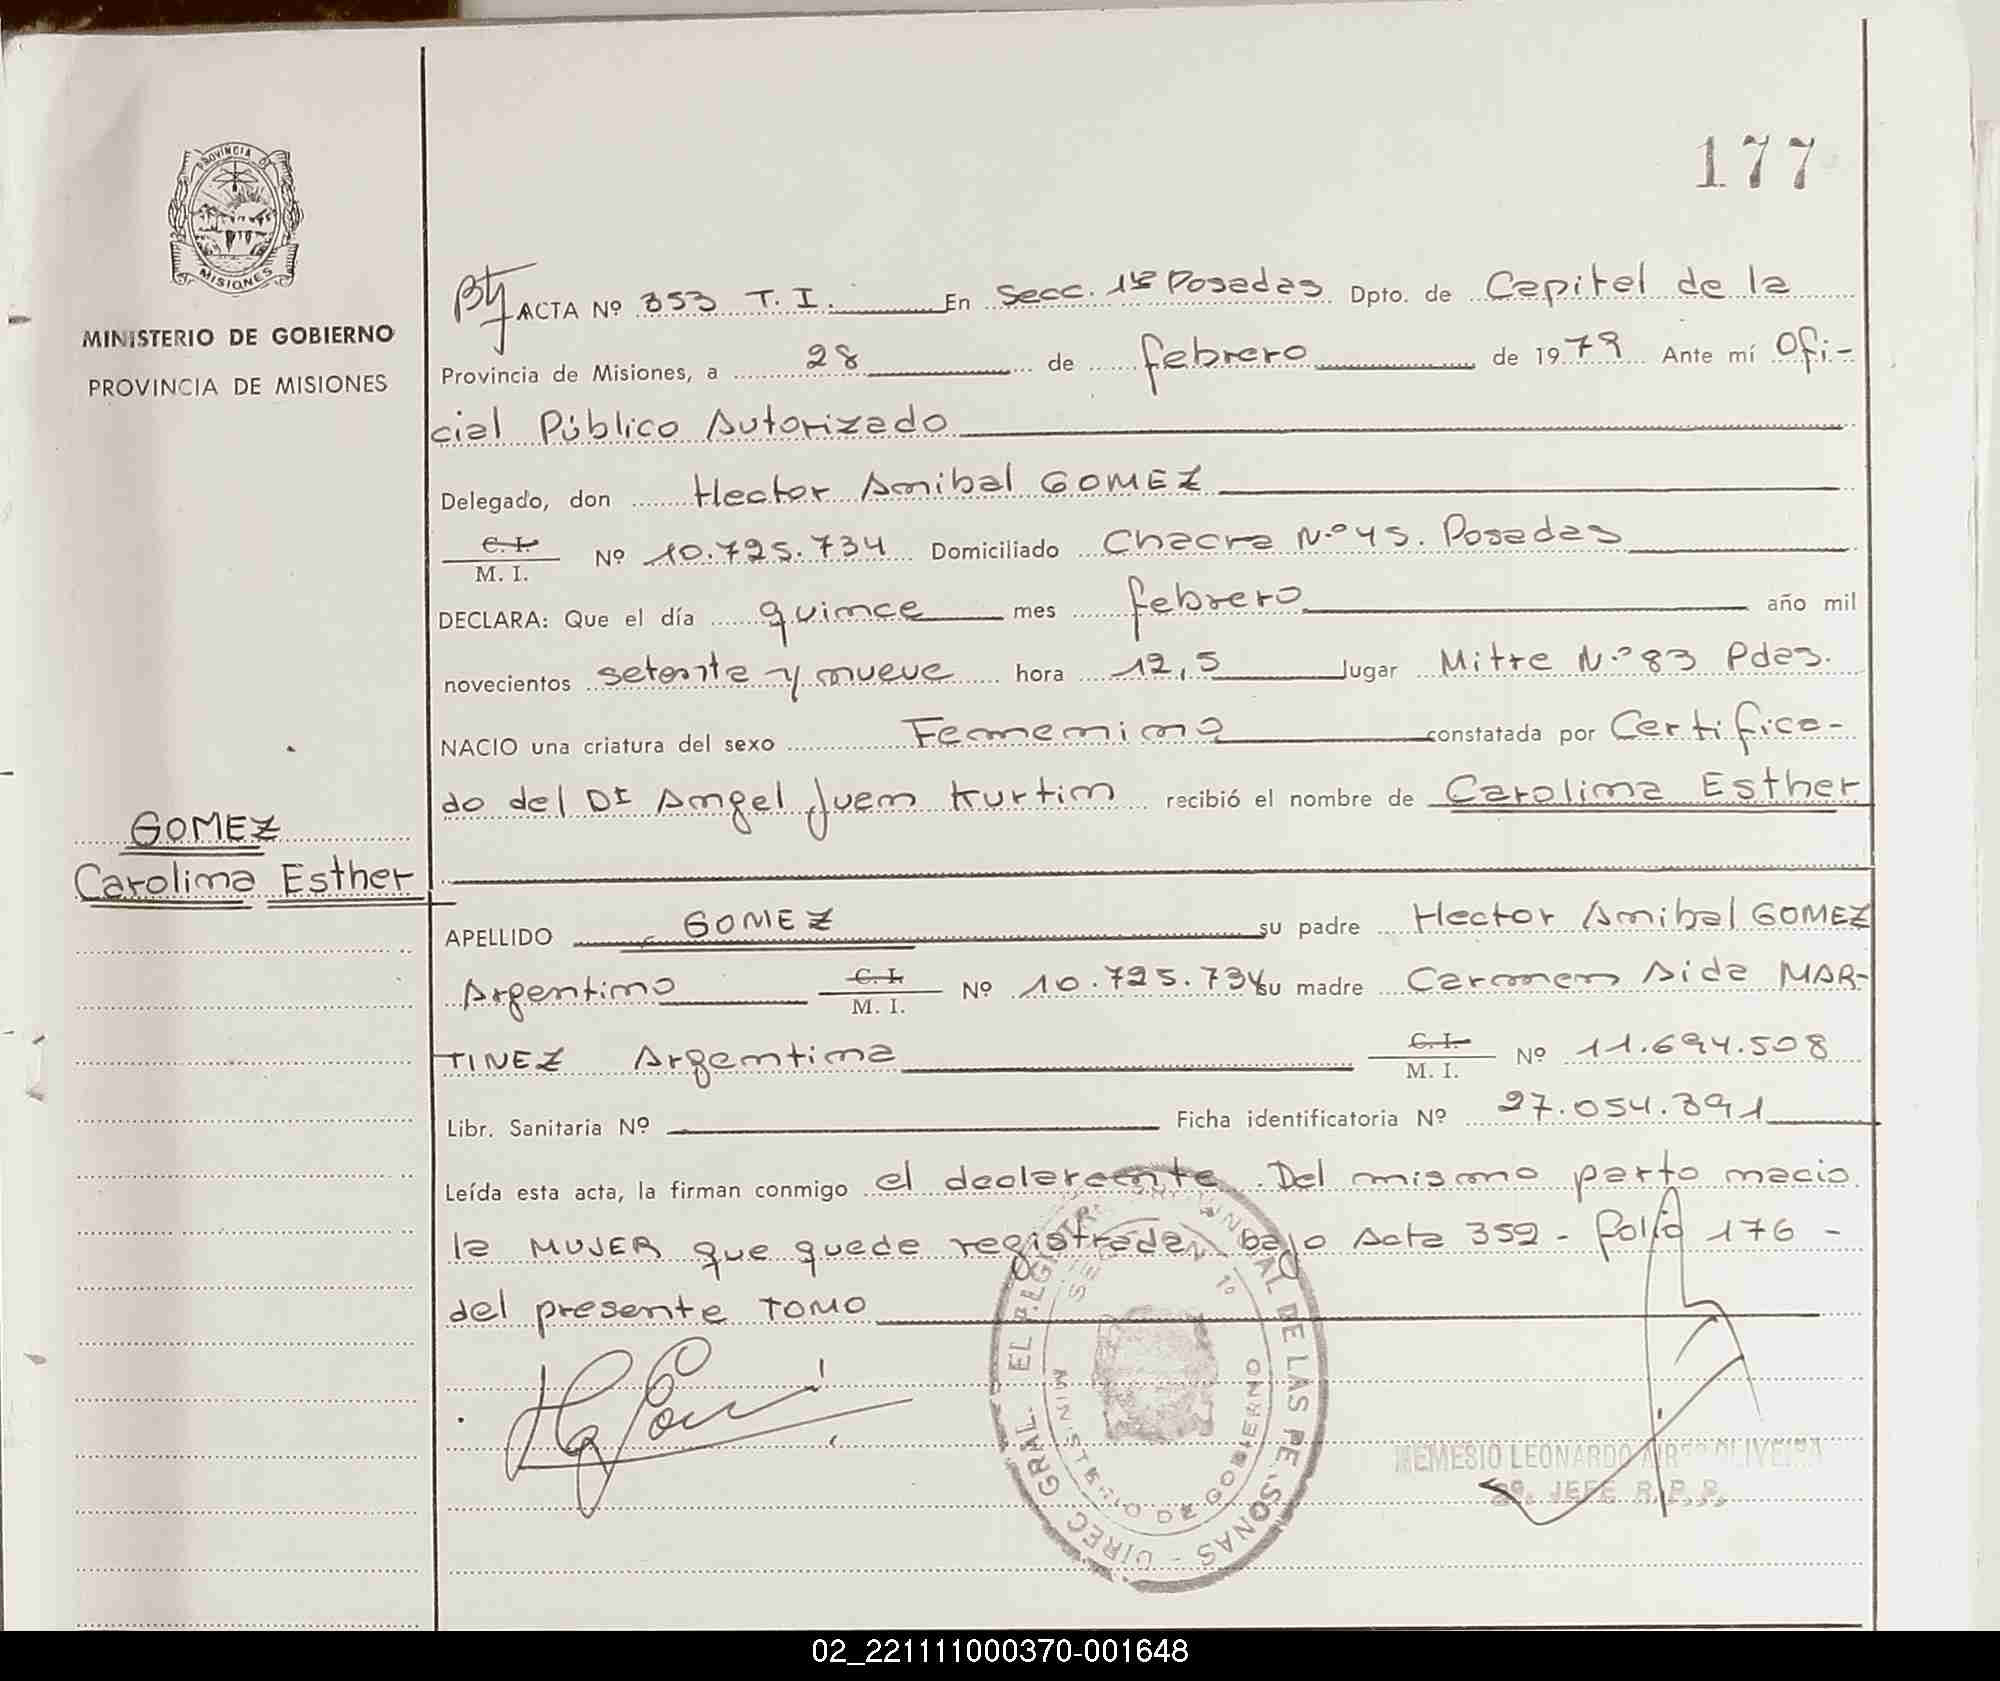 177
PROVINCIA DE
MISIONES
MINISTERIO DE GOBIERNO
PROVINCIA DE MISIONES
ACTA Nº 353 T. I. En Secc. 1ra Posadas Dpto. de Capital de la
Provincia de Misiones, a 28 de febrero de 1979 Ante mí Ofi-
cial Público Autorizado
Delegado, don Hector Anibal GOMEZ
C. I.
M. I. Nº 10.725.734 Domiciliado Chacra N.º 45. Posadas
DECLARA: Que el día quince mes febrero año mil
novecientos setenta y nueve hora 12,5 lugar Mitre N.º 83 Pdas.
NACIO una criatura del sexo Femenino constatada por Certifica-
do del Dr Angel Juan Kurtin recibió el nombre de Carolina Esther
GOMEZ
Carolina Esther
APELLIDO GOMEZ su padre Hector Anibal GOMEZ
Argentino C. I.
M. I. Nº 10.725.734 su madre Carmen Aida MAR-
TINEZ Argentina C. I.
M. I. Nº 11.694.508
Libr. Sanitaria Nº Ficha identificatoria Nº 27.054.391
Leída esta acta, la firman conmigo el declarante. Del mismo parto nacio
la MUJER que quede registrada bajo Acta 352 - folio 176 -
del presente TOMO
DIREC GRAL. EL REGISTR DE LAS PERSONAS
SECCION 1º
MINISTERIO DE GOBIERNO
NEMESIO LEONARDO OLIVEIRA
2º. JEFE R. P. P.
02_221111000370-001648